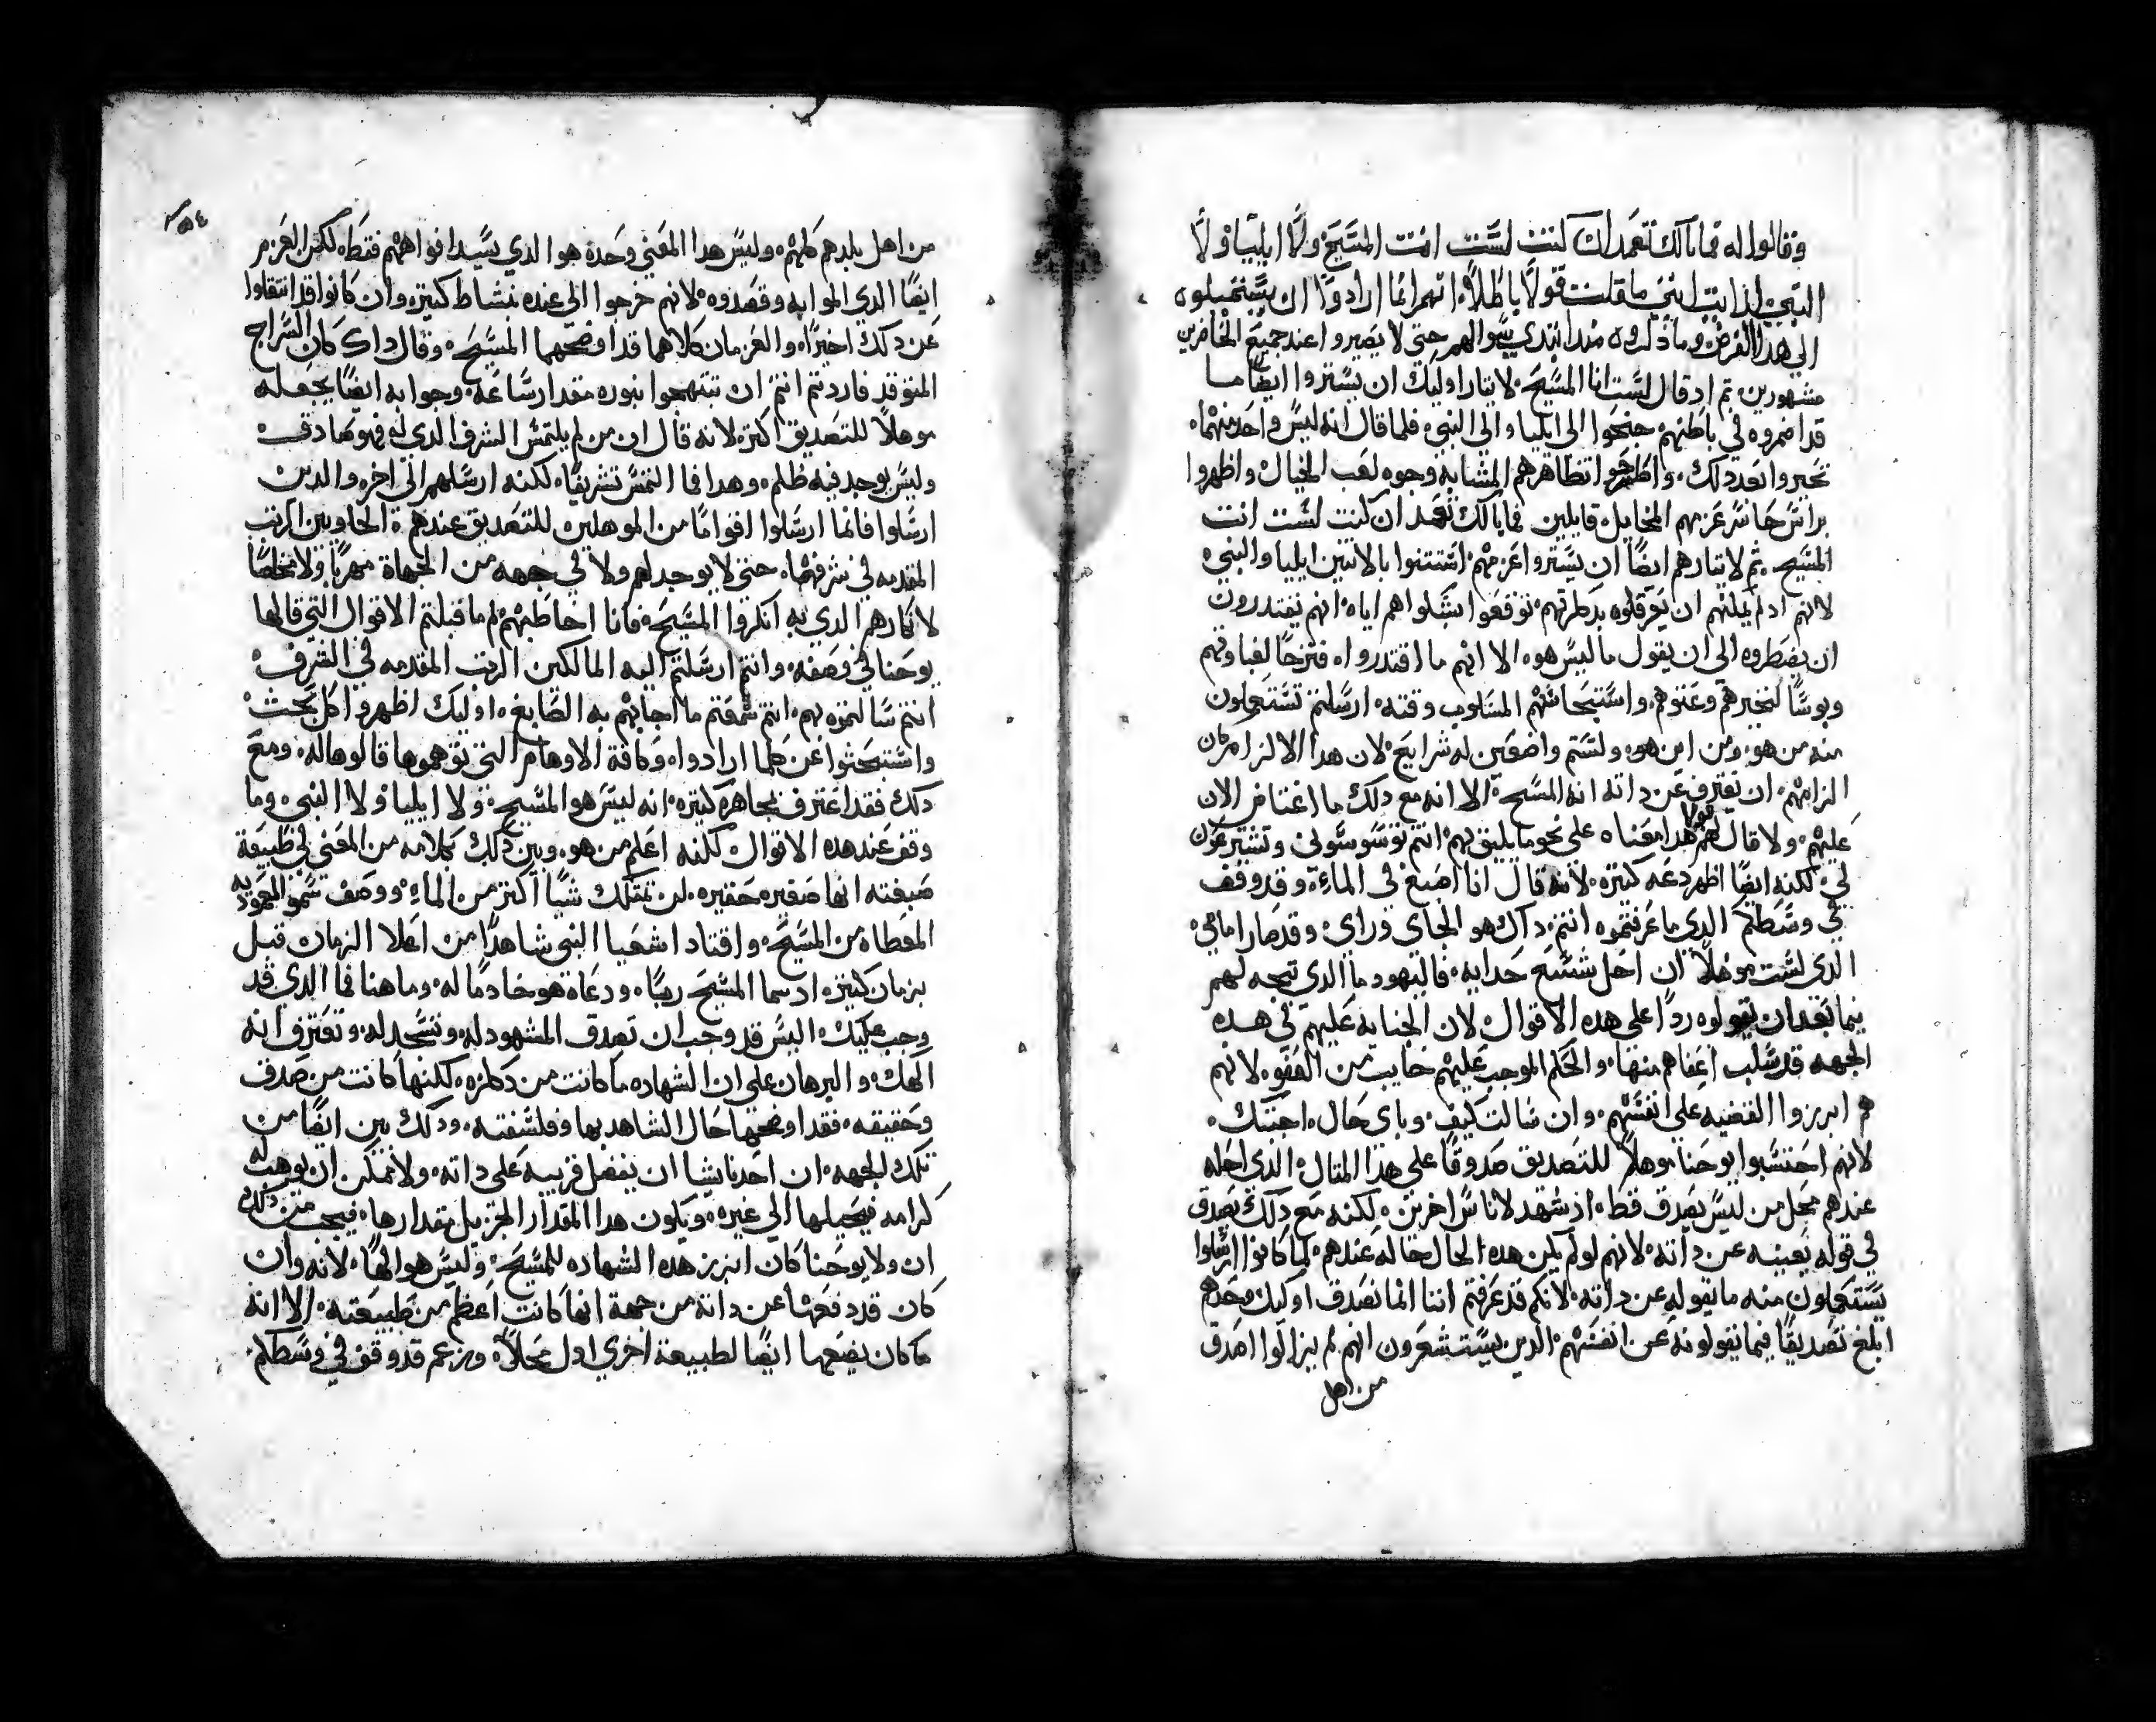 وقالوا له فما بالك تعمد ان كنت لست انت المسيح ولا ايليا ولا
النبي ارايت انني ما قلت قولاً باطلاً انهم انما ارادوا ان يستميلوه
الى هذا الغرض وما ذكروه مند ابتدى سوالهم حتى لا يصيروا عند جميع الحاضرين
مشهورين، تم اد قال لست انا المسيح، لايتار اوليك ان يستروا ايضاً ما
قد اضمروه في باطنهم جنحوا الى ايليا والى النبي، فلما قال انه ليس واحد منهما
تحيروا بعد دلك، واطرحوا تظاهرهم المشابه وجوه لعب الخيال واظهروا
براس حاسر عزمهم المخايل، قايلين فما بالك تعمد ان كنت لست انت
المسيح، تم لايتارهم ايضاً ان يستروا عزمهم استتنوا بالاتنين ايليا والنبي
لانهم اد لم يمكنهم ان يعرقلوه بدكرتهم توقعوا بشكواهم اياه انهم يقتدرون
ان يضطروه الى ان يقول ما ليس هو، الا انهم ما اقتدروا، فترحاً لغباوتهم
وبوساً لتجبرهم وعتوهم، واستبحاتهم المسلوب وقته، ارسلتم تستعملون
منه من هو، ومن اين هو، ولستم واضعين له شرايع، لان هدا الالزام كان
الزامهم، ان يعترف عن داته انه المسيح، الا انه مع دلك ما اغتاض الان
عليهم، ولا قال لهم قولا هدا معناه على نحو ما يليق بهم، انتم توسوسوني وتشترعون
لي، لكنه ايضاً اظهر دعه كتيره، لانه قال انا اصبغ في الماء، وقد وقف
في وسطكم الدي ما عرفتموه انتم، داك هو الجاي وراي، وقد صار امامي
الدي لست موهلاً ان احل شسع حدايه، فاليهود ما الدي تتجه لهم
فيما بعد ان يقولوه رداً على هده الاقوال، لان الجنايه عليهم في هده
الجهه قد سلب اعفاهم منها، والحكم الموجب عليهم خايب من العفو، لانهم
هم ابرزوا القضيه على انفسهم، وان سالت كيف، وباي حال، اجبتك
لانهم احتسبوا يوحنا موهلاً للتصديق صدوقاً على هذا المتال، الدي احله
عندهم محل من ليس يصدق قط، اذ شهد لاناس اخرين، لكنه مع دلك يصدق
في قوله بعينه عن داته، لانهم لو لم يكن هده الحال حاله عندهم، لما كانوا ارسلوا
يستعملون منه ما يقوله عن داته، لانكم قد عرفتم اننا انما نصدق اوليك وحدهم
ابلغ تصديقاً فيما يقولونه عن انفسهم، الدين يستشعرون انهم لم يزالوا اصدق
من اهل
من اهل بلدهم كلهم، وليس هدا المعنى وحده هو الدي يسد افواههم فقط، لكن العزم
ايضاً الدي الموا به وقصدوه، لانهم خرجوا الى عنده بنشاط كتيره، وان كانوا قد انتقلوا
عن دلك اخيراً، والعزمان كلاهما قد اوضحهما المسيح، وقال داك كان السراج
المتوقد فاردتم انتم ان تبتهجوا بنوره مقدار ساعة، وجوابه ايضاً يجعله
موهلاً للتصديق اكتر، لانه قال ان من لم يلتمس الشرف الدي له فهو صادق
وليس يوجد فيه ظلم، وهدا فما التمس تشريفاً، لكنه ارسلهم الى اخر، والدين
ارسلوا فانما ارسلوا اقواماً من الموهلين للتصديق عندهم، الحاوين الرتب
المقدمه في شرفها، حتى لا يوجد لهم ولا في جهه من الجهاة مهرباً ولا مخلصاً
لانكارهم الدي به انكروا المسيح، فانا اخاطبهم لم ما قبلتم الاقوال التي قالها
يوحنا في وصفه، وانتم ارسلتم اليه المالكين الرتب المقدمه في الشرف
انتم سالتموه بهم، انتم سمعتم ما اجابهم به الصابغ، اوليك اظهروا كل بحث
واستبحثوا عن كلما ارادوا، وكافة الاوهام التي توهموها قالوها له، ومع
دلك فقد اعترف بمجاهره كتيره، انه ليس هو المسيح، ولا ايليا، ولا النبي، وما
وقف عند هده الاقوال، لكنه اعلم من هو، وبين دلك بكلامه من المعنى في طبيعة
صبغته انها صغيره حقيره، لن تمتلك شياً اكتر من الماء، ووصف سمو المعموديه
المعطاه من المسيح، واقتاد اشعيا النبي شاهداً من اعلا الزمان قبل
بزمان كتير، اد سما المسيح رباً، ودعاه هو خادماً له، وما هنا فما الدي قد
وجب عليك، اليس قد وجب ان تصدق المشهود له، وتسجد له، وتعترف انه
الهك، والبرهان على ان الشهاده ما كانت من دكره، لكنها كانت من صدق
وحقيقه، فقد اوضحها حال الشاهد بها وفلسفته، ودلك بين ايضاً من
تلك الجهه، ان احدنا يشا ان يفضل قريبه على داته، ولا يمكن ان يوهب له
كرامه فيحيلها الى غيره، ويكون هدا المقدار الجزيل مقدارها، فيجب من دلك
ان ولا يوحنا كان ابرز هده الشهاده للمسيح، وليس هو الهاً، لانه وان
كان قد دفعها عن داته من جهة انها كانت اعظم من طبيعته، الا انه
ما كان يضعها ايضاً لطبيعة اخري ادل محلاً، وزعم قد وقف في وسطكم